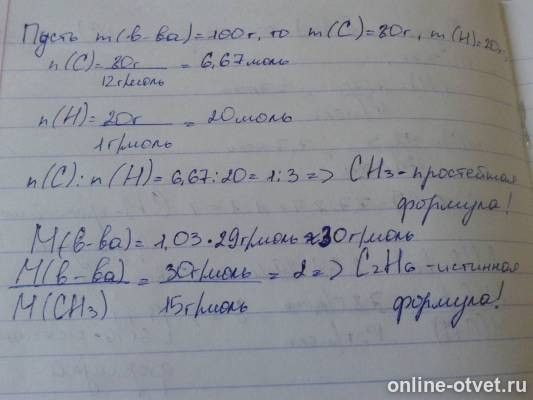 Пусть m(в-ва)=100г, то m(C)=80г, m(H)=20г,
n(C)=80г/12г/моль = 6,67моль
n(H)=20г/1г/моль = 20моль
n(C):n(H)=6,67:20=1:3=> CH3-простейшая формула!
M(в-ва)=1,03·29г/моль≈30г/моль
M(в-ва)/M(CH3) = 30г/моль/15г/моль = 2 => C2H6-истинная формула!
online-otvet.ru